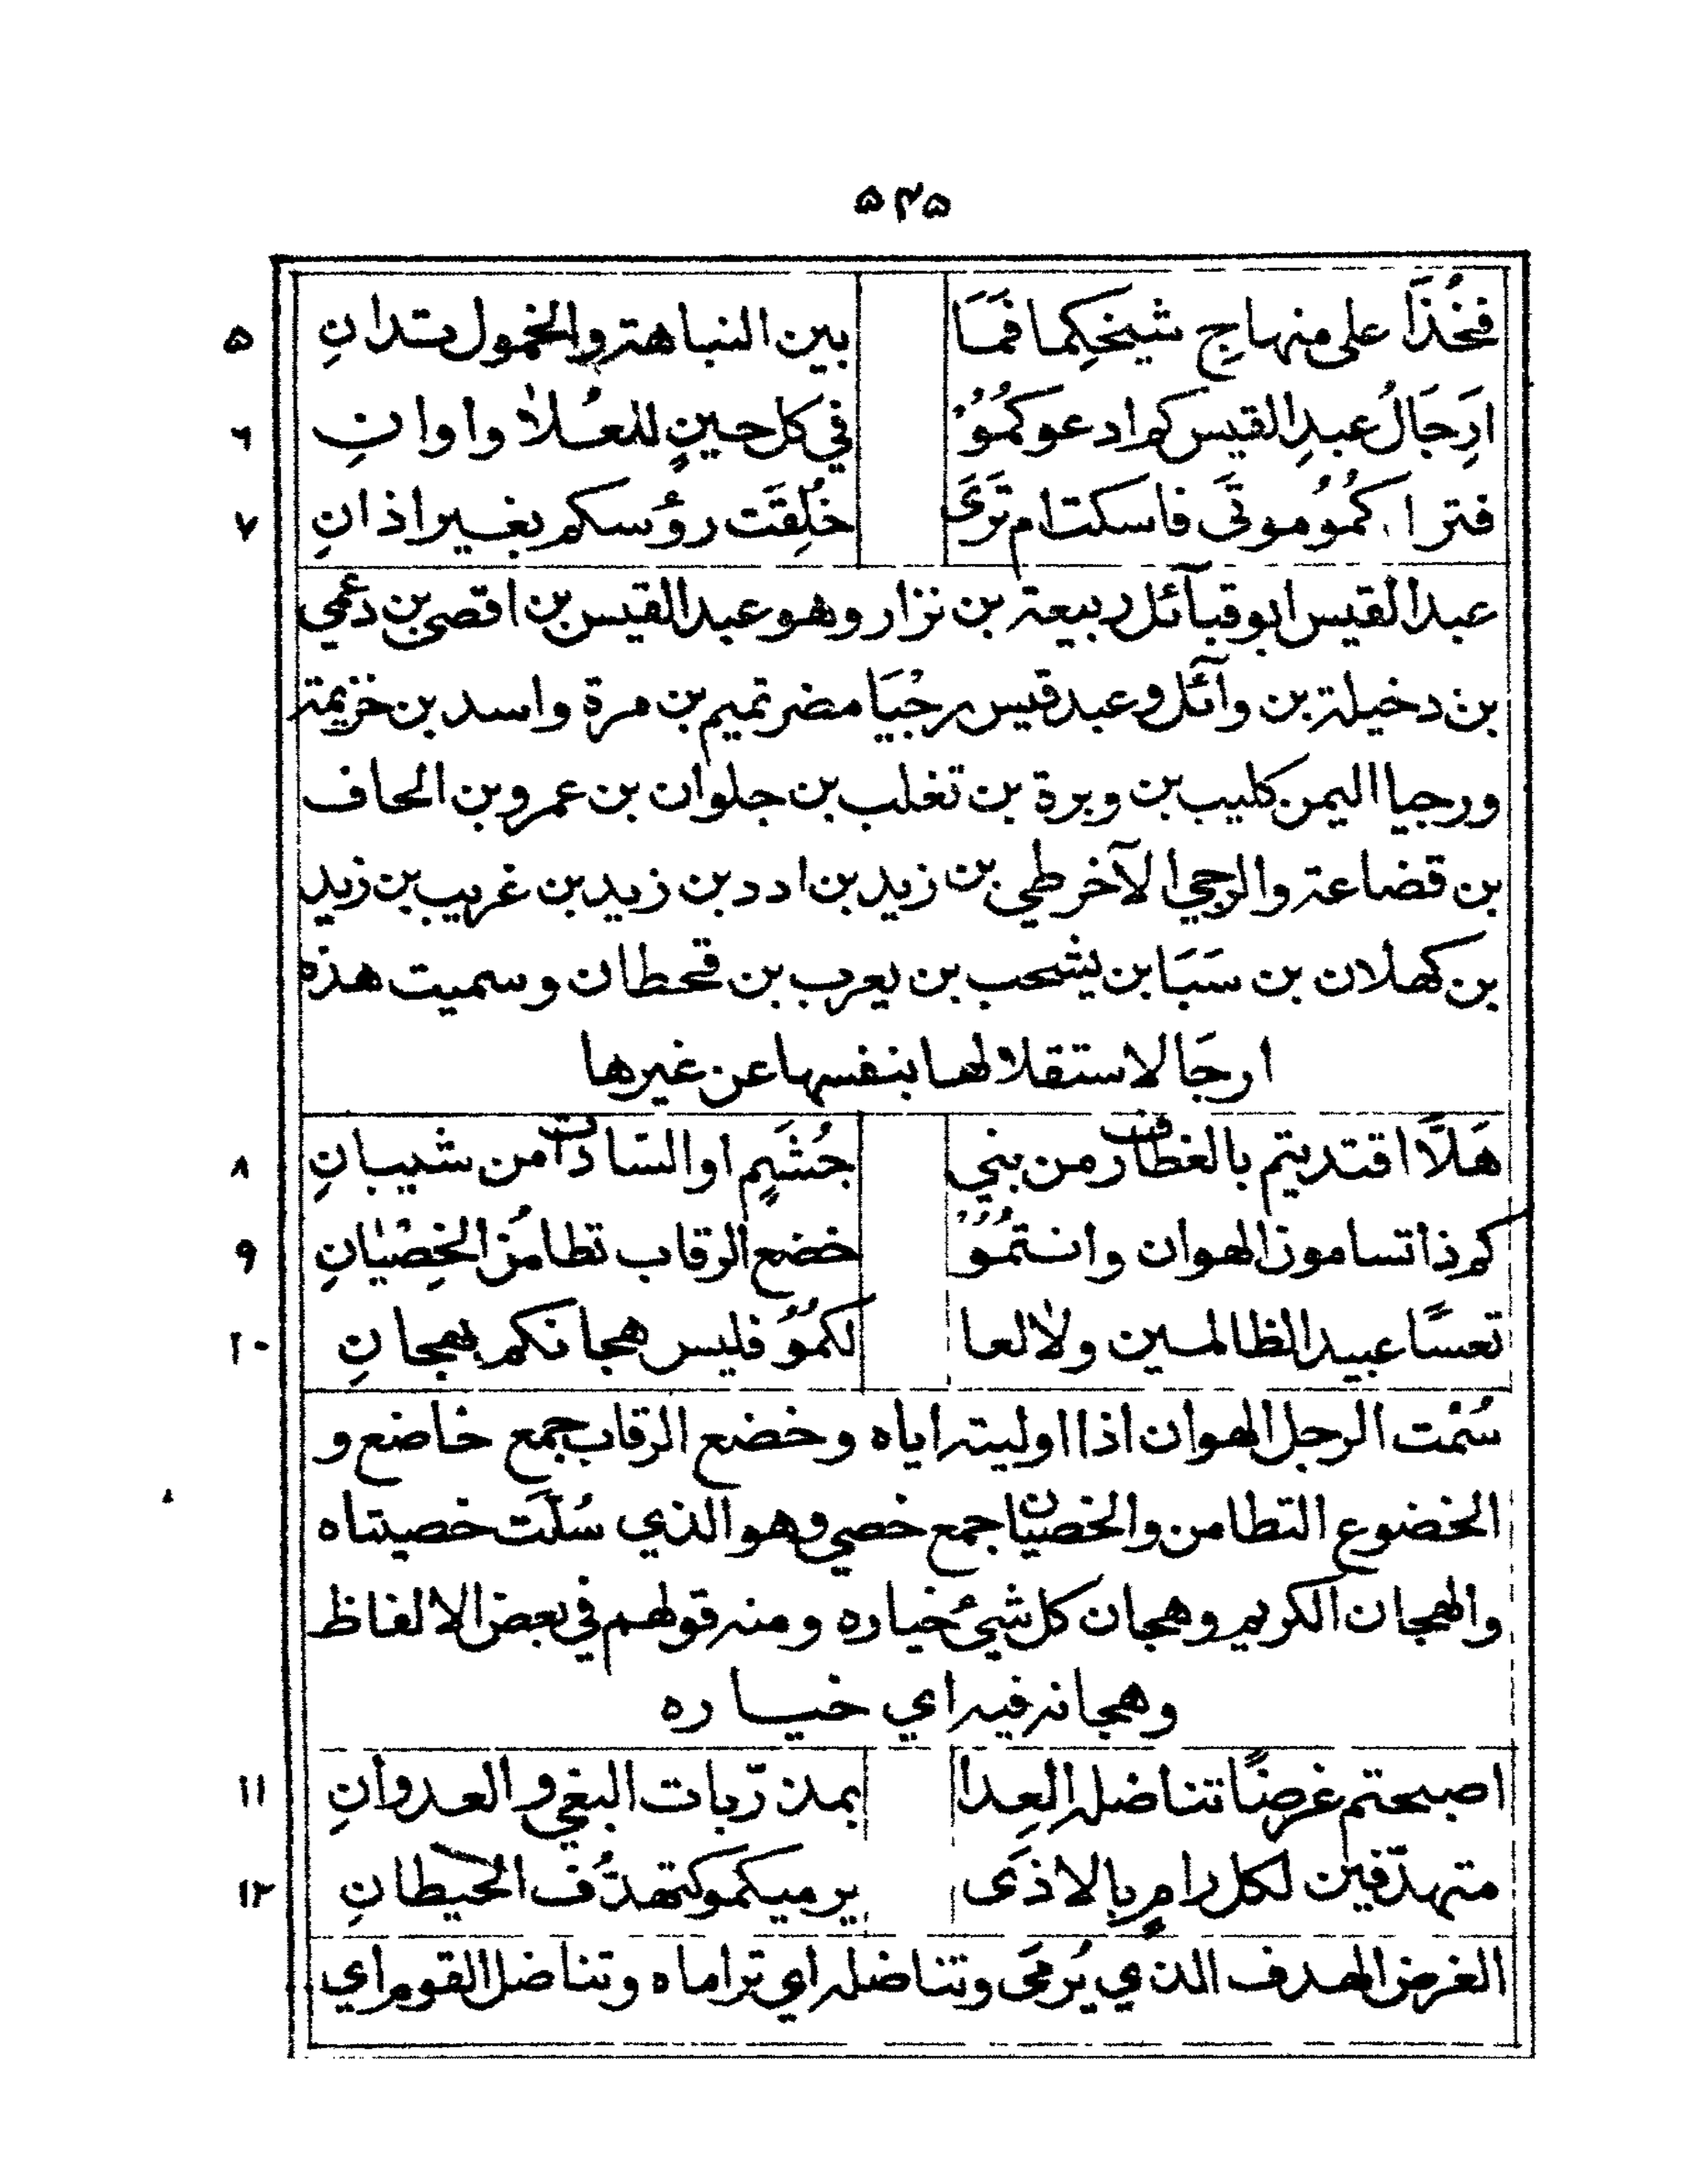 ۵۴۵
فَخُذَا على منهاجِ شيخكِما فمَا بين النباهة والخمول تدانِ ۵
ارِجَالُ عبدِ القيس كم ادعوكمُوُ في كل حينٍ للعُلاٰ واوانِ ۶
فتراكمُوُ موتَى فاسكت ام تَرَىَ خُلِقَت رؤسكم بغير اذانِ ۷
عبد القيس ابو قبآئل ربيعة بن نزار وهو عبد القيس بن اقصى بن دعمي
بن دخيلة بن وآئل وعبد قيس رجْيَا مضر تميم بن مرة واسد بن خزيمة
ورجيا اليمن كليب بن وبرة بن تغلب بن جلوان بن عمرو بن الحاف
بن قضاعة والرجي الآخر طي بن زيد بن ادد بن زيد بن غريب بن زيد
بن كهلان بن سَبَا بن يشحب بن يعرب بن قحطان وسميت هذه
ارجَا لاستقلالها بنفسها عن غيرها
هَلَّا اقتديتم بالغطارف من بني جُشَمٍ او السّادات من شيبانِ ۸
كم ذا تسامون الهوان وانتمُوُ خضع الرقاب تطامُنَ الخِصْيٰانِ ۹
تعسًا عبيد الظالمين ولاٰ لعا لكمُوُ فليس هجانكم بهجانِ ۱۰
سُمْت الرجل الهوان اذا اوليته اياه وخضع الرقاب جمع خاضع و
الخضوع التطامن والخصيان جمع خصي وهو الذي سُلّت خصيتاه
والهجان الكريم وهجان كل شيءٍ خياره ومنه قولهم في بعض الالفاظ
وهجانه فيه اي خياره
اصبحتم غرضًا تناضله العِدا بمذرّبات البغي والعدوانِ ۱۱
متهدّفين لكل رامٍ بالاذَى يرميكمو كتهدُّف الحيطانِ ۱۲
الغرض الهدف الذي يُرمَى وتناضله اي تراماه وتناضل القوم اي